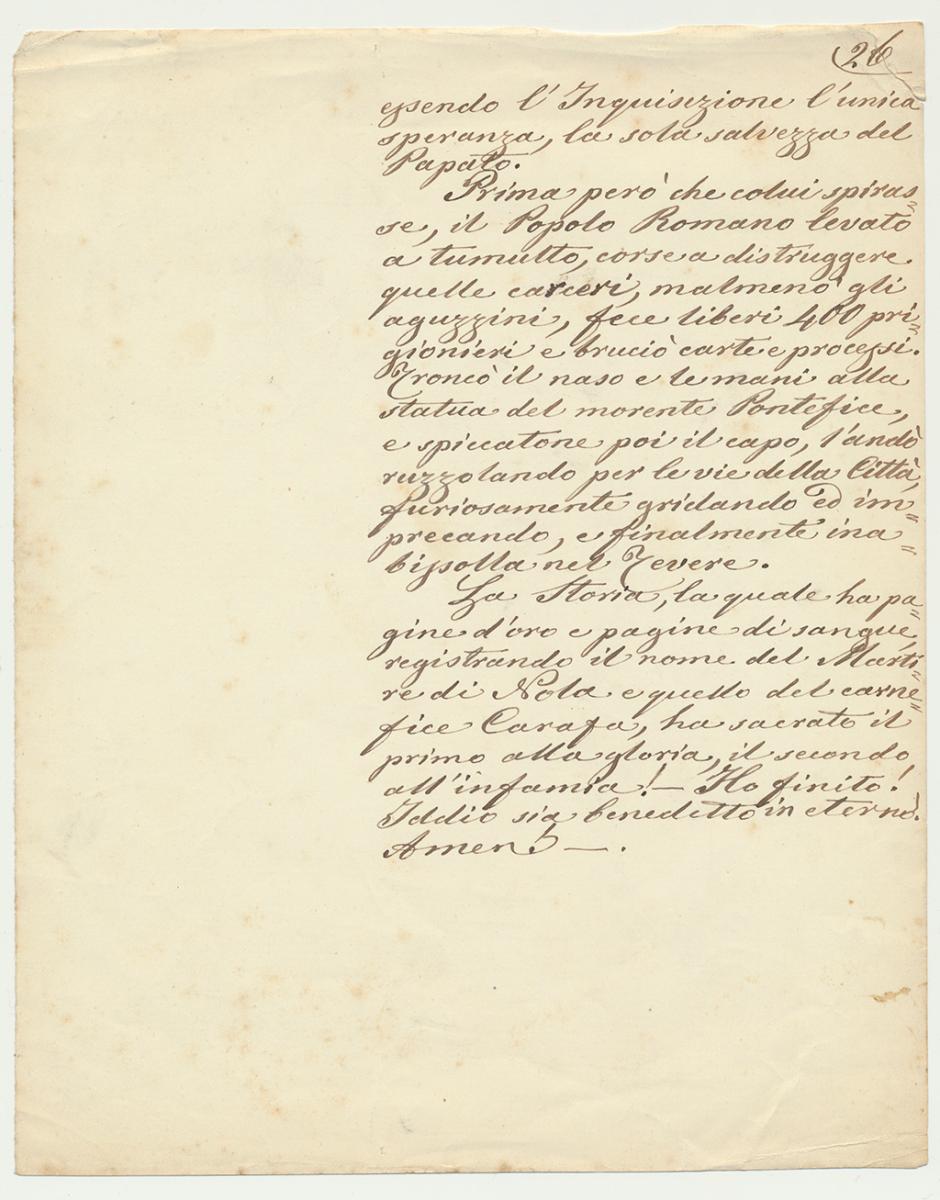 26
essendo l'Inquisizione l'unica
speranza, la sola salvezza del
Papato.
Prima però che colui spiras=
se, il Popolo Romano levato
a tumulto, corse a distruggere
quelle carceri, malmenò gli
aguzzini, fece liberi 400 pri=
gionieri e bruciò carte e processi.
Troncò il naso e le mani alla
statua del morente Pontefice,
e spiccatone poi il capo, l'andò
ruzzolando per le vie della Città,
furiosamente gridando ed im=
precando, e finalmente ina=
bissolla nel Tevere.
La Storia, la quale ha pa=
gine d'oro e pagine di sangue,
registrando il nome del Marti=
re di Nola e quello del carne=
fice Carafa, ha sacrato il
primo alla gloria, il secondo
all'infamia! — Ho finito!
Iddio sia benedetto in eterno.
Amen! — .